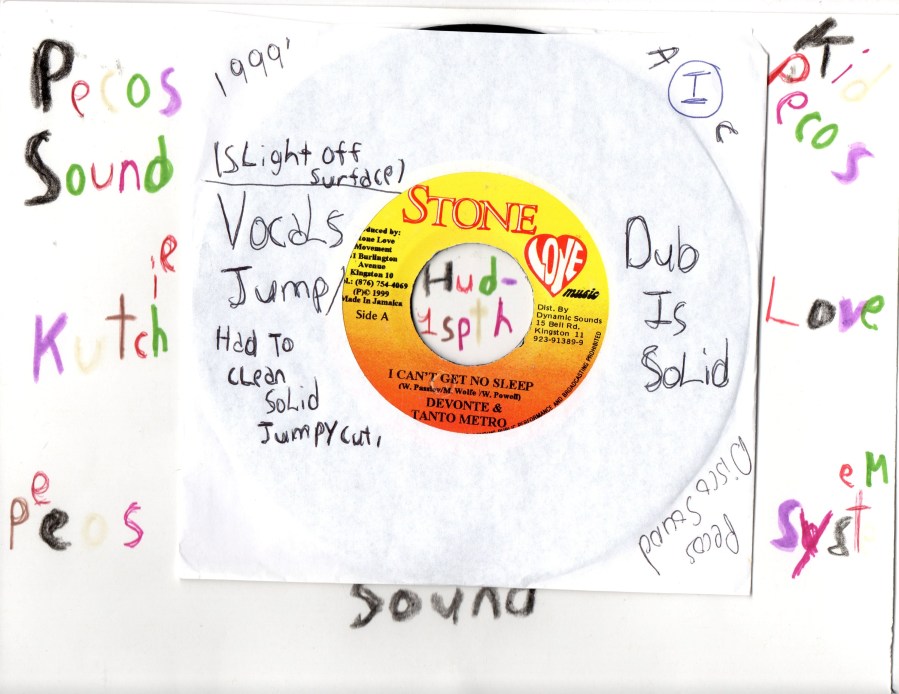 Pecos
Sound
Kutchie
Peeos
1999'
(SLight off
surface)
Vocals
Jump/
Had To
cLean
SoLid
JumpY cut,
STONE
LOVE
music
duced by:
tone Love
Movement
1 Burlington
Avenue
Kingston 10
L: (876) 754-4069
(P)© 1999
Made In Jamaica
Side A
Hud-
1spth
Dist. By
Dynamic Sounds
15 Bell Rd,
Kingston 11
923-91389-9
I CAN'T GET NO SLEEP
(W. Passley/M. Wolfe /W. Powell)
DEVONTE &
TANTO METRO
PUBLIC PERFORMANCE AND BROADCASTING PROHIBITED
Dub
Is
SoLid
A
I
c
Pecos
Disco Sound
Kid
Pecos
Love
System
Sound